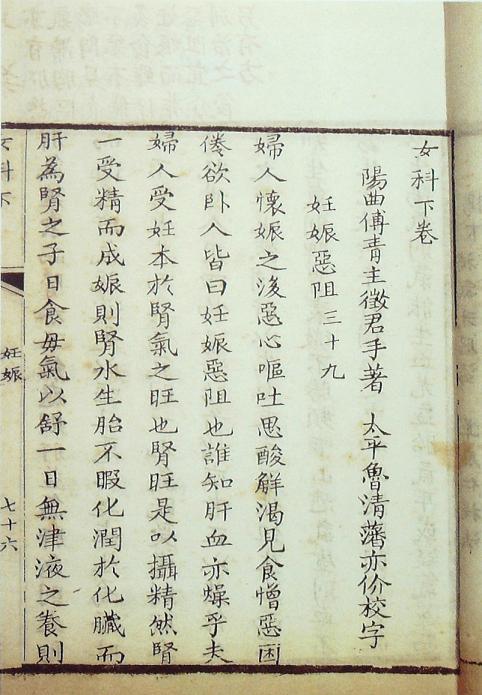 女科下卷
陽曲傅青主徵君手著 太平魯清藩亦价校字
妊娠惡阻三十九
婦人懷娠之後惡心嘔吐思酸解渴見食憎惡困
倦欲臥人皆曰妊娠惡阻也誰知肝血亦燥乎夫
婦人受妊本於腎氣之旺也腎旺是以攝精然腎
一受精而成娠則腎水生胎不暇化潤於化臟而
肝為腎之子日食毋氣以舒一日無津液之養則
女科下
妊娠
七十六